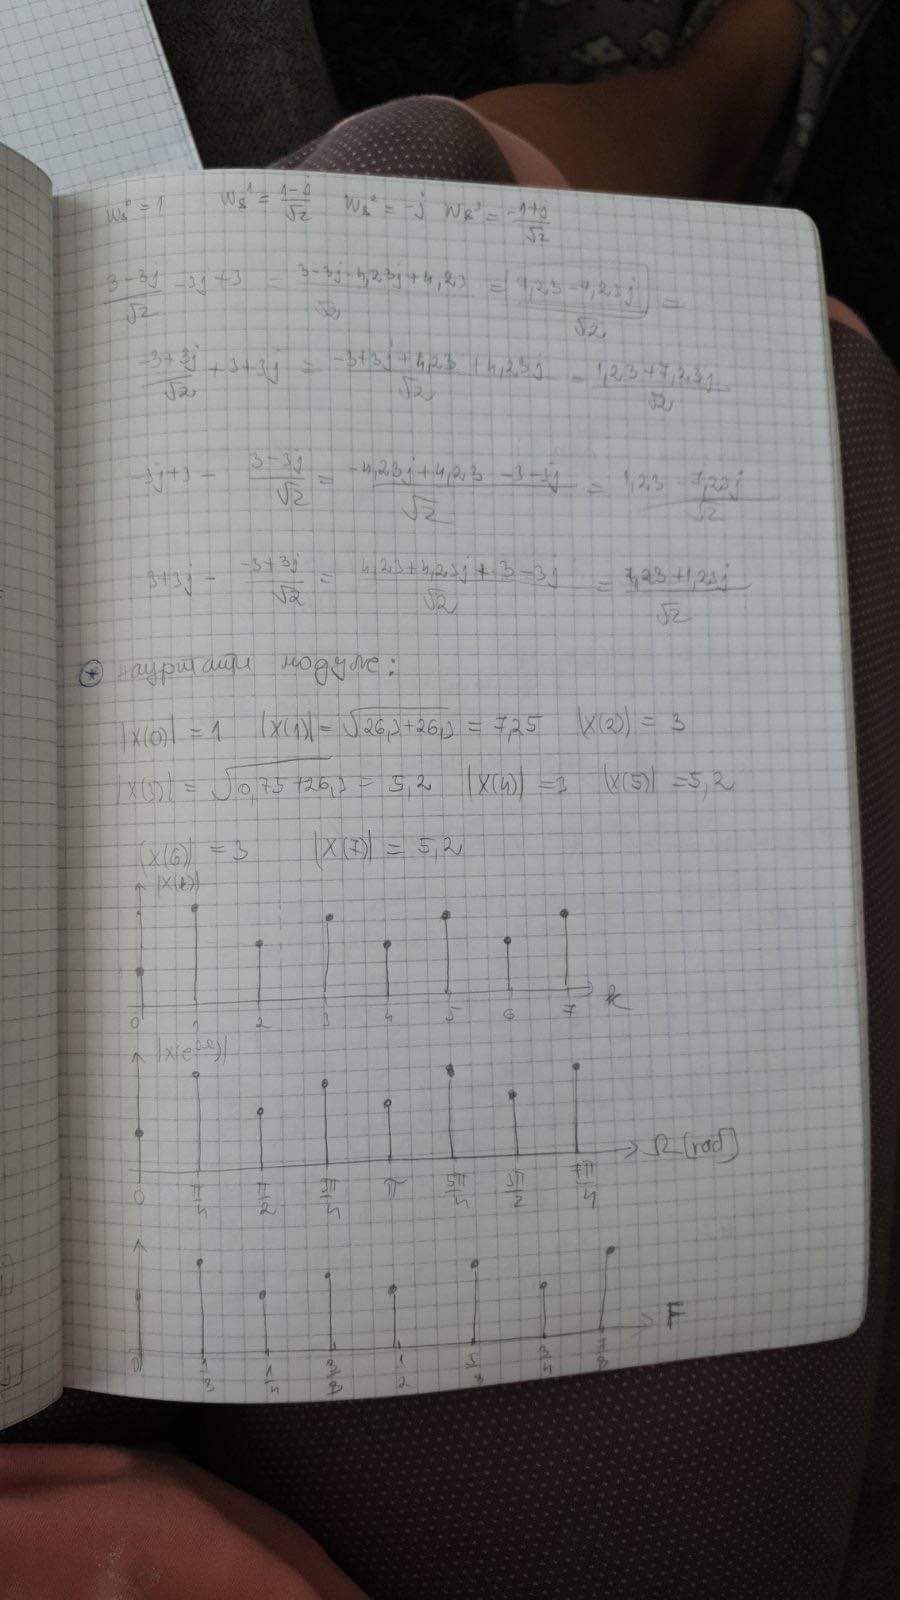 W₈⁰ = 1 W₈¹ = (1-j)/√2 W₈² = -j W₈³ = (-1+j)/√2
(3-3j)/√2 - 3j + 3 = (3-3j-4,23j+4,23)/√2 = (7,23-7,23j)/√2 =
(-3+3j)/√2 + 3+3j = (-3+3j+4,23+4,23j)/√2 = (1,23+7,23j)/√2
-3j+3 - (3-3j)/√2 = (-4,23j+4,23-3-3j)/√2 = (1,23-7,23j)/√2
3+3j - (-3+3j)/√2 = (4,23+4,23j+3-3j)/√2 = (7,23+1,23j)/√2
* нацртати модуле:
|X(0)| = 1 |X(1)| = √(26,3+26,3) = 7,25 |X(2)| = 3
|X(3)| = √(0,75+26,3) = 5,2 |X(4)| = 3 |X(5)| = 5,2
|X(6)| = 3 |X(7)| = 5,2
|X(k)|
0 1 2 3 4 5 6 7 k
|X(e^jΩ)|
Ω [rad]
0 π/4 π/2 3π/4 π 5π/4 3π/2 7π/4
F
0 1/8 1/4 3/8 1/2 5/8 3/4 7/8